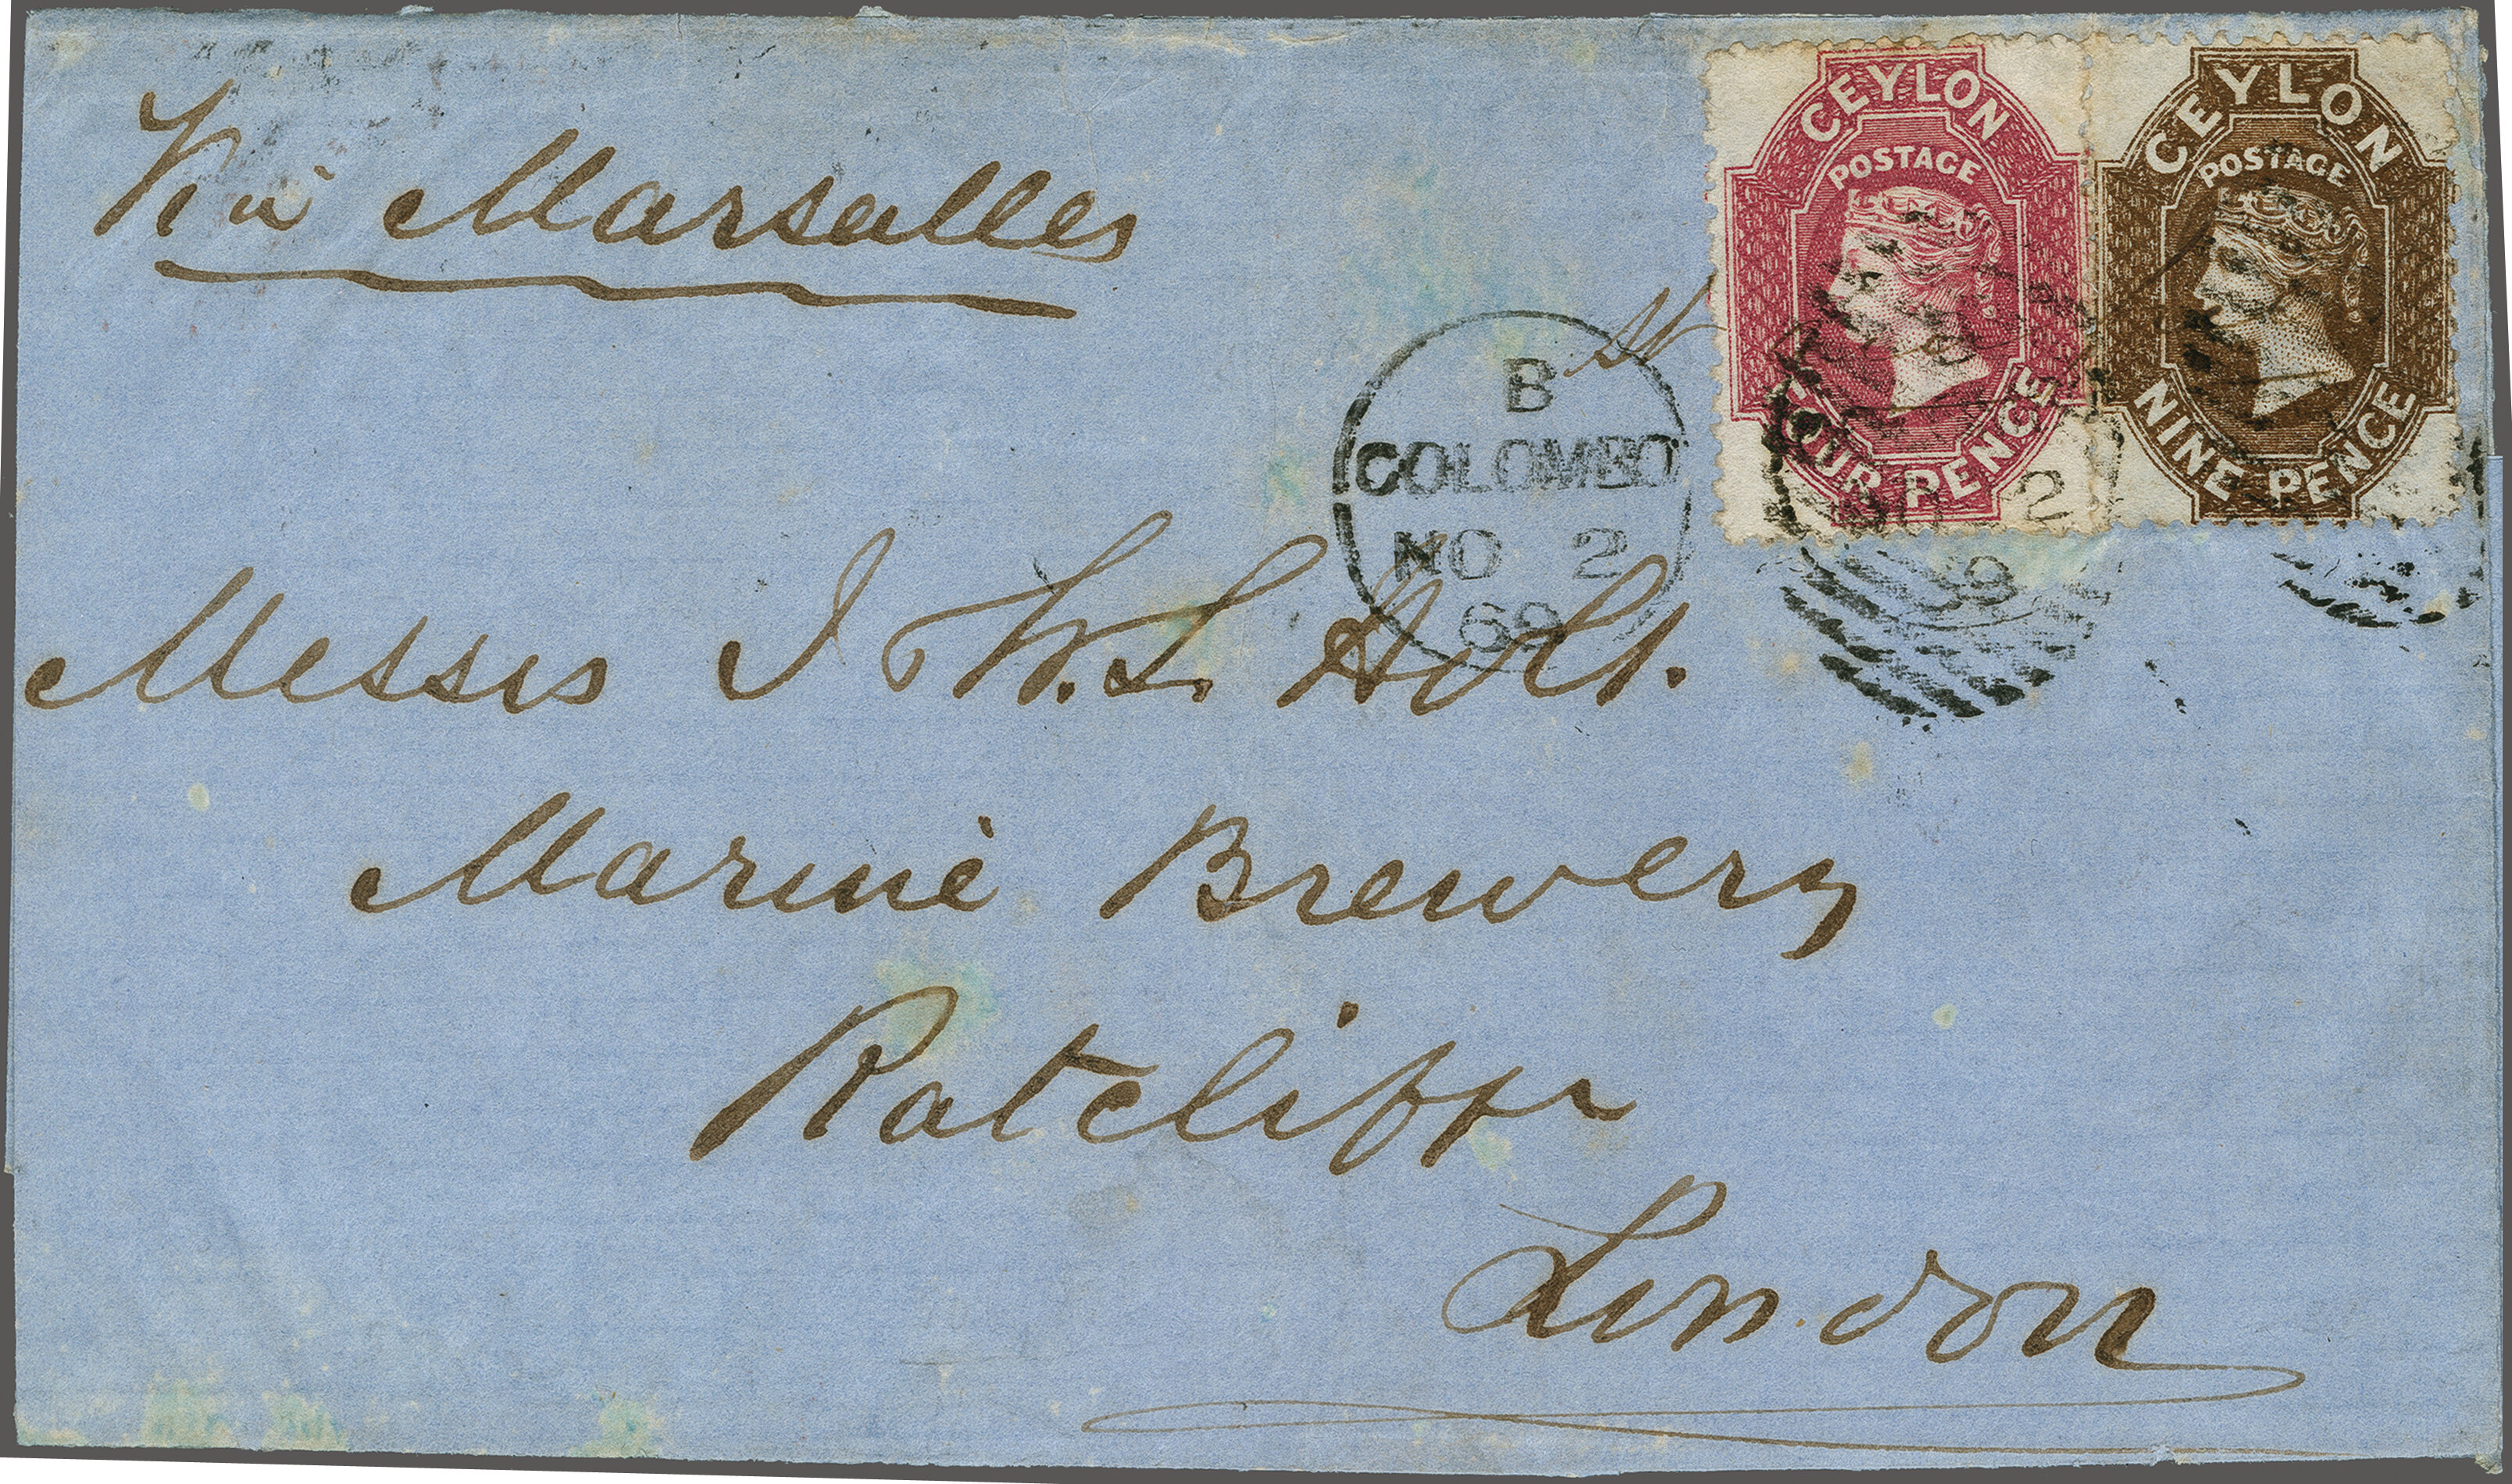 Via Marsalles
CEYLON
POSTAGE
FOUR PENCE
CEYLON
POSTAGE
NINE PENCE
B
COLOMBO
NO 2
69
Messrs J & W. S. Holt.
Marine Brewery
Ratcliff
London